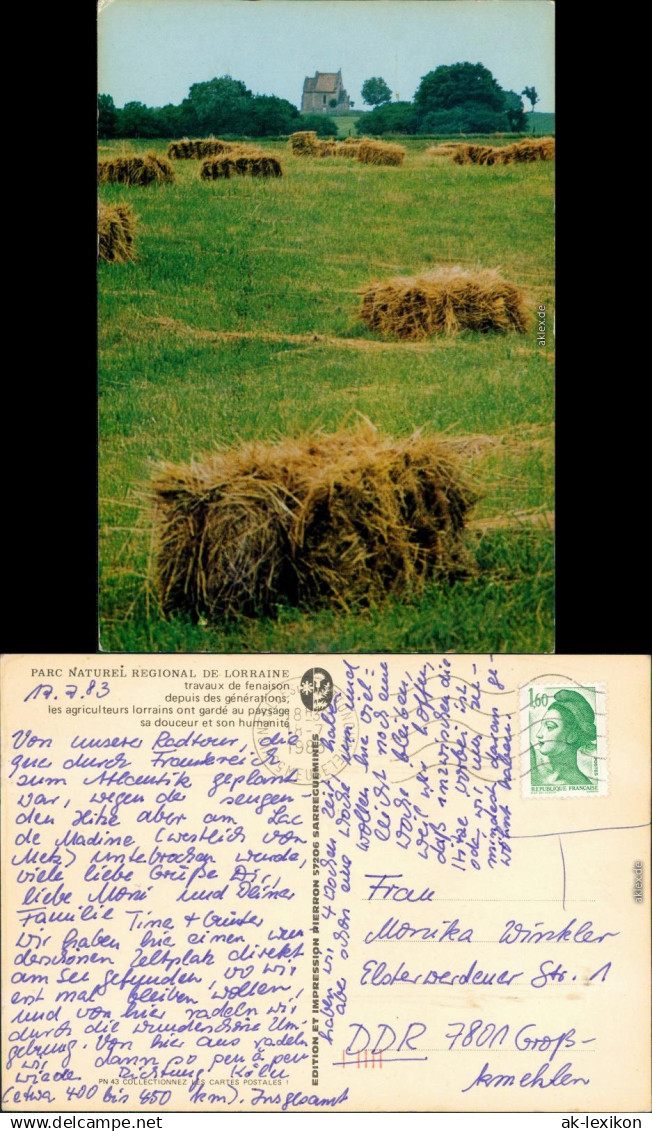 aklexikon.de
PARC NATUREL REGIONAL DE LORRAINE
travaux de fenaison
depuis des générations,
les agriculteurs lorrains ont gardé au paysage
sa douceur et son humanité
17.7.83
Von unserer Radtour, die
quer durch Frankreich
zum Atlantik geplant
war, wegen der sengen-
den Hitze aber am Lac
de Madine (westlich von
Metz) unterbrochen wurde,
viele liebe Grüße Dir,
liebe Moni und Deiner
Familie Tina + Günter
Wir haben hier einen wun-
derschönen Zeltplatz direkt
am See gefunden, wo wir
erst mal bleiben wollen,
und von hier radeln wir
durch die wunderschöne Um-
gebung. Von hier aus radeln
wir dann so peu à peu
wieder Richtung Köln
(etwa 400 bis 450 km). Insgesamt
haben wir 4 Wochen Zeit
aber schon eine Woche um und
wollen hier viel-
leicht noch eine
Woche bleiben,
weil wir hoffen,
daß inzwischen die
Hitze vorbei ist
oder wir uns zu-
mindest daran ge-
wöhnt haben.
PN 43 COLLECTIONNEZ LES CARTES POSTALES !
EDITION ET IMPRESSION PIERRON 57206 SARREGUEMINES
1,60
REPUBLIQUE FRANÇAISE
Frau
Monika Winkler
Elsterwerdaer Str. 1
DDR 7801 Groß-
kmehlen
aklexikon.de
© ak-lexikon